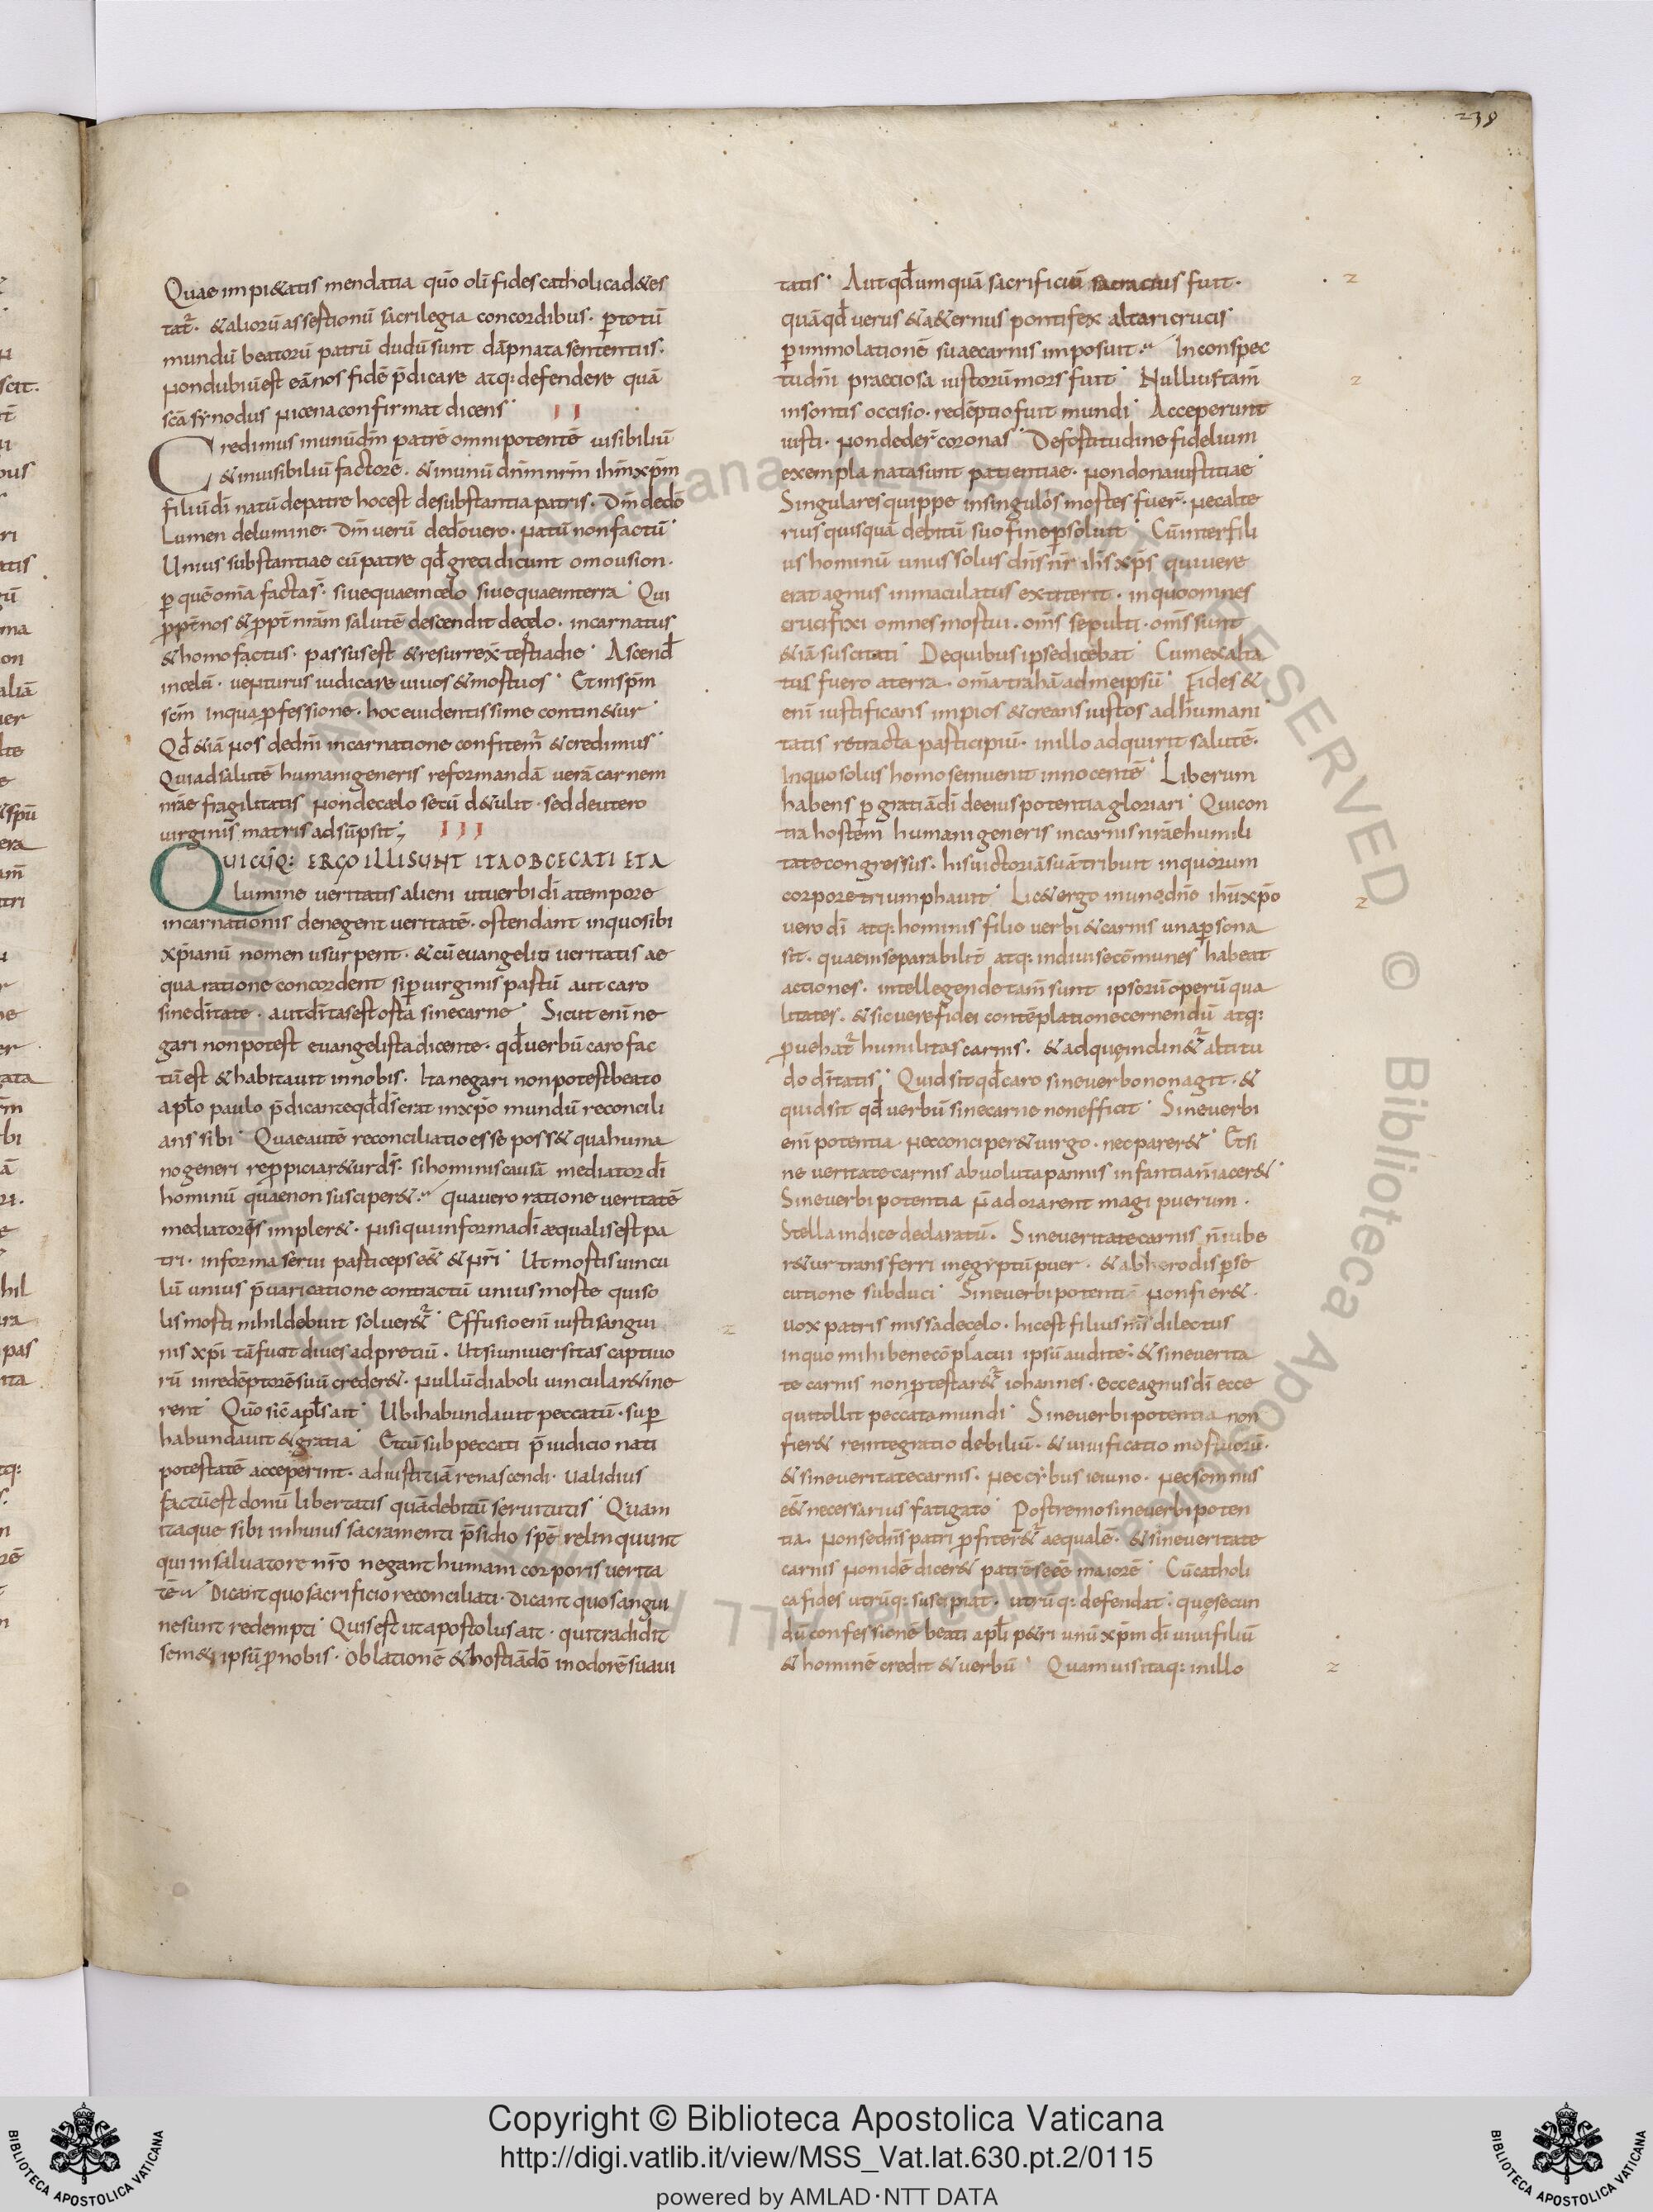 238
Quae impi&atis mendatia quō olī fides catholica d&es
tat᷑. & aliorū assertionū sacrilegia concordibus. ꝑ totū
mundū beatorū patrū dudū sunt dāpnata sententiis.
Non dubiū est eā nos fidē p̄dicare atq: defendere quā
scā synodus nicena confirmat dicens. II
Credimus in unū dm̄ patrē omnipotentē uisibiliū
& inuisibiliū factorē. & in unū dn̄m nr̄m ih̄m xp̄m
filiū dī natū de patre hoc est de substantia patris. Dm̄ de dō
Lumen de lumine. Dm̄ uerū de dō uero. natū non factū.
Unius substantiae cū patre qđ greci dicunt omousion.
ꝑ quē omīa facta s̄. siue quae in celo siue quae in terra. Qui
ꝓpt̄ nos & ꝓpt̄ nr̄am salutē descendit de celo. incarnatus
& homo factus. passus est & resurrex̄ tertia die. Ascend̄
in celū. uenturus iudicare uiuos & mortuos. Et in sp̄m
sc̄m in qua ꝓfessione. hoc euidentissime contin&ur.
Qđ &iā nos de dn̄i incarnatione confitem᷑ & credimus.
Quia ad salutē humani generis reformandā uerā carnem
nr̄ae fragilitatis non de caelo secū d&ulit. sed de utero
uirginis matris adsūpsit; III
QUICŪQ: ERGO ILLI SUNT ITA OBCECATI ET A
Lumine ueritatis alieni ut uerbi dī a tempore
incarnationis denegent ueritatē. ostendant in quo sibi
xp̄ianū nomen usurpent. & cū euangelii ueritatis ae
qua ratione concordent si ꝑ uirginis partū aut caro
sine dītate. aut dītas est orta sine carne. Sicut enī ne
gari non potest euangelista dicente. qđ uerbū caro fac
tū est & habitauit in nobis. Ita negari non potest beato
apl̄o paulo p̄dicante qđ dš erat in xp̄o mundū reconcili
ans sibi. Quae autē reconciliatio esse poss& qua huma
no generi repꝓpiciar&ur dš. si hominis causā mediator dī
hominū quae non susciper&. qua uero ratione ueritatē
mediatores impler&. nisi qui in forma dī aequalis est pa
tri. in forma serui particeps e&̄ & nr̄i. Ut mortis uincu
lū unius p̄uaricatione contractū unius morte qui so
lus morti nihil debuit soluer&᷑. Effusio enī iusti sangui
nis xp̄i tā fuit diues ad pretiū. ut si uniuersitas captiuo
rū in redēptorē suū creder&. nullū diaboli uincula r&ine
rent. Quō sic̄ apl̄s ait. Ubi habundauit peccatū. suꝑ
habundauit & gratia. Et cū sub peccati p̄iudicio nati
potestatē acceperint. ad iustitiā renascendi. ualidius
factū est donū libertatis quā debitū seruitutis. Quam
itaque sibi in huius sacramenti p̄sidio spē relinquunt
qui in saluatore nr̄o negant humani corporis uerita
tē. Dicant quo sacrificio reconciliati. dicant quo sangui
ne sunt redempti. Quis est ut apostolus ait. qui tradidit
sem& ipsū ꝓ nobis. oblationē & hostiā dō in odorē suaui
tatis. Aut qđ umquā sacrificiū sacratius fuit.
quā qđ uerus & a&ernus pontifex altari crucis
ꝑ immolationē suae carnis imposuit. In conspec
tu dn̄i praeciosa iustorū mors fuit. Nullius tam̄
insontis occisio. redēptio fuit mundi. Acceperunt
iusti. non deder̄ coronas. De fortitudine fidelium
exempla nata sunt patientiae. non dona iustitiae.
Singulares quippe in singulos mortes fuer̄. nec alte
rius quisquā debitū suo fine ꝑsoluit. Cū inter fili
us hominū unus solus dn̄s nr̄ ih̄s xp̄s qui uere
erat agnus inmaculatus extiterit. in quo omnes
crucifixi omnes mortui. om̄s sepulti. om̄s sunt
&iā suscitati. De quibus ipse dicebat. Cum exalta
tus fuero a terra. omīa trahā ad me ipsū. Fides &
enī iustificans impios & creans iustos ad humani
tatis retracta participiū. in illo adquirit salutē.
In quo solus homo se inuenit innocentē. Liberum
habens ꝑ gratiā dī de eius potentia gloriari. Qui con
tra hostem humani generis in carnis nr̄ae humili
tate congressus. his uictoriā suā tribuit in quorum
corpore triumphauit. Lic& ergo in uno dn̄o ih̄u xp̄o
uero dī atq: hominis filio uerbi & carnis una ꝑsona
sit. quae inseparabilit̄ atq: indiuise cōmunes habeat
actiones. intellegende tam̄ sunt ipsorū operū qua
litates. & sic uere fidei contēplatione cernendū atq:
ꝓuehat᷑ humilitas carnis. & ad quę inclin&᷑ altitu
do dītatis. Quid sit qđ caro sine uerbo non agit. &
quid sit qđ uerbū sine carne non efficit. Sine uerbi
enī potentia nec conciper& uirgo. nec parer&. Et si
ne ueritate carnis ab uoluta pannis infantia n̄ iacer&.
Sine uerbi potentia n̄ adorarent magi puerum.
Stella indice declaratū. Sine ueritate carnis n̄ iube
r&ur transferri in ęgyptū puer. & ab herodis ꝑse
cutione subduci. Sine uerbi potentī non fier&.
uox patris missa de celo. hic est filius m̄s dilectus
in quo mihi bene cōplacui ipsū audite. & sine uerita
te carnis non ꝓtestar&᷑ iohannes. ecce agnus dī ecce
qui tollit peccata mundi. Sine uerbi potentia non
fier& reintegratio debiliū. & uiuificatio mortuorū.
& sine ueritate carnis. nec cybus ieiuno. nec somnus
e&̄ necessarius fatigato. Postremo sine uerbi poten
tia. non se dn̄s patri ꝓfiter&᷑ aequalē. & sine ueritate
carnis non idē dicer& patrē se eē maiorē. Cū catholi
ca fides utrūq: suscipiat. utrūq: defendat. quę secun
dū confessionē beati apl̄i p&ri unū xp̄m dī uiui filiū
& hominē credit & uerbū. Quamuis itaq: in illo
Copyright © Biblioteca Apostolica Vaticana
http://digi.vatlib.it/view/MSS_Vat.lat.630.pt.2/0115
powered by AMLAD·NTT DATA
BIBLIOTECA APOSTOLICA VATICANA
BIBLIOTECA APOSTOLICA VATICANA